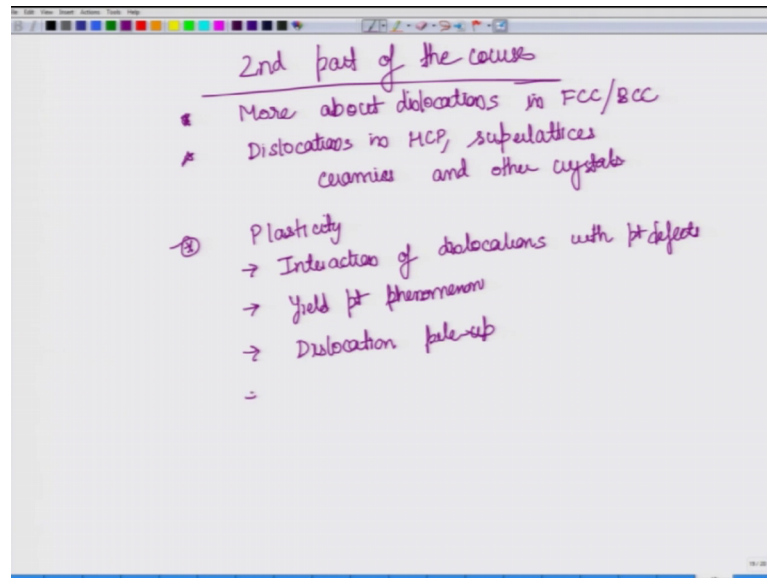 File Edit View Insert Actions Tools Help
2nd part of the course
* More about dislocations in FCC/BCC
* Dislocations in HCP, superlattices
ceramics and other crystals
* Plasticity
→ Interaction of dislocations with pt defects
→ Yield pt phenomenon
→ Dislocation pile-up